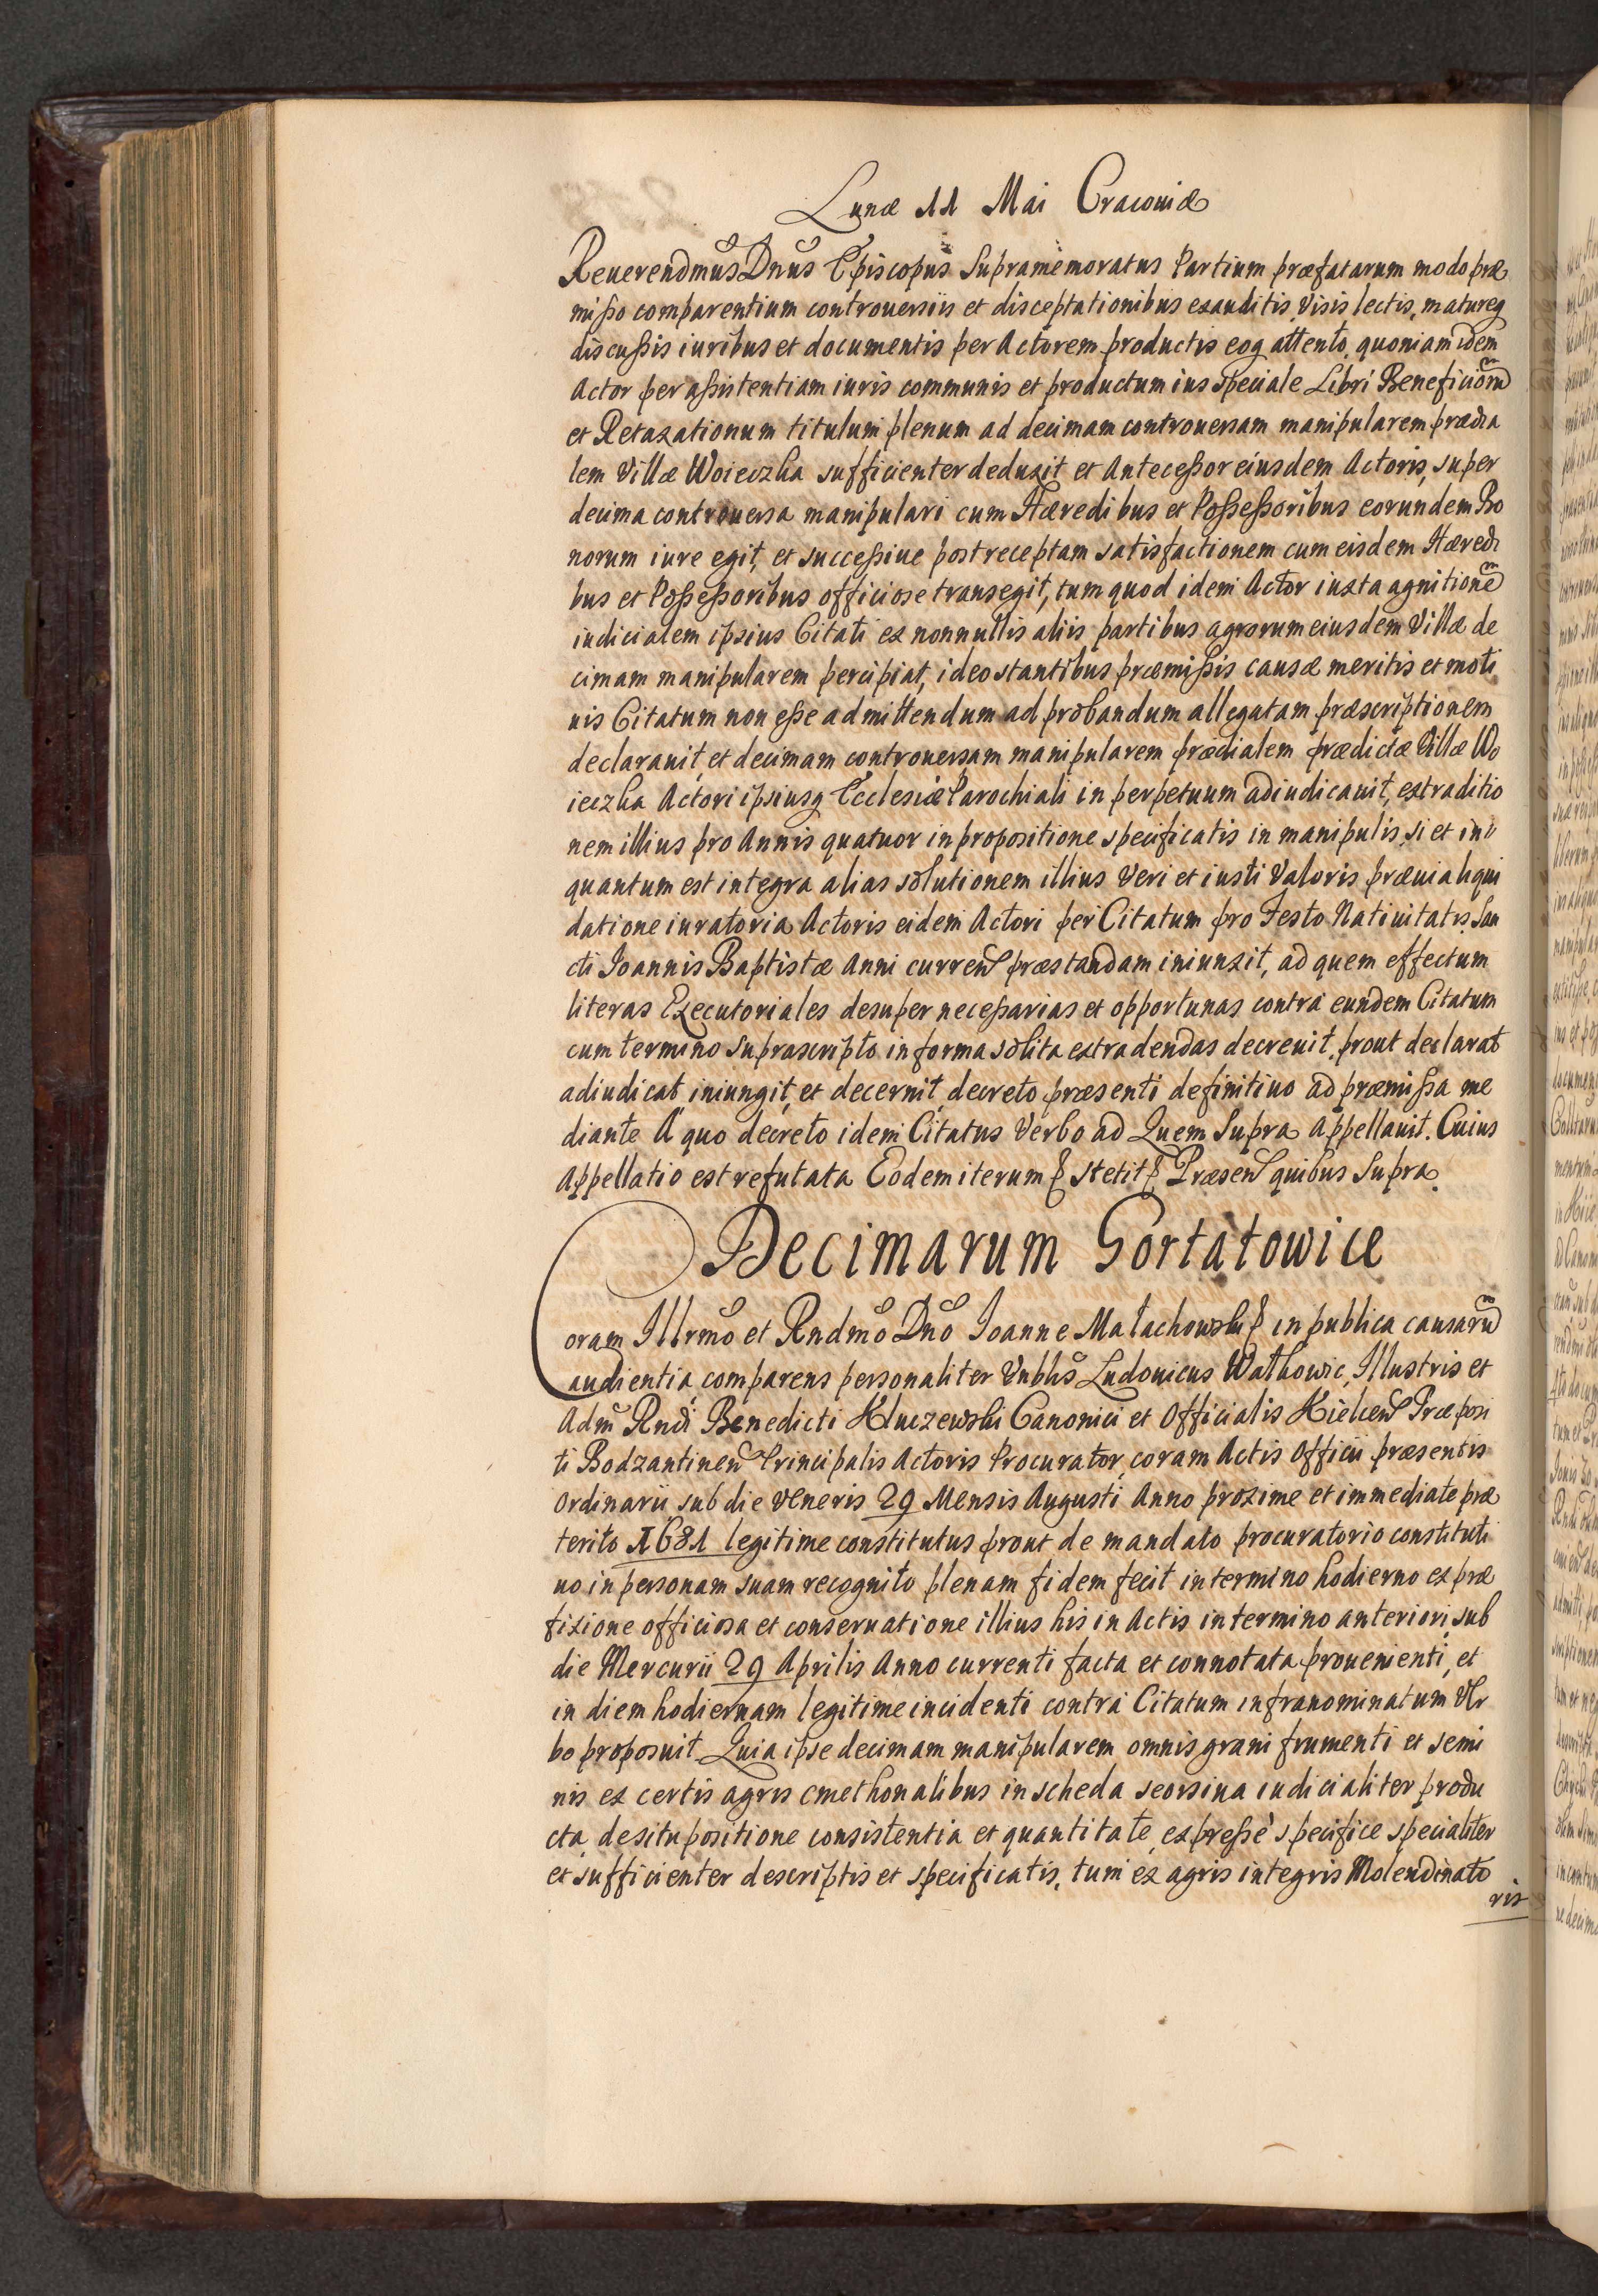 Lunæ 11 Mai Cracouiæ
Reuerendmus Dnus Episcopus Supramemoratus Partium præfatarum modo præ
mißo comparentium controuersiis et disceptationibus exauditis visis lectis, matureq
discußis iuribus et documentis per Actorem productis eoq attento, quoniam idem
Actor per aßistentiam iuris communis et productum ius speciale Libri Beneficiorũ
et Retaxationum titulum plenum ad decimam controuersam manipularem prædia
lem Villæ Woieczka sufficienter deduxit et Anteceßor eiusdem Actoris, super
decima controuersa manipulari cum Hæredibus et Poßeßoribus eorundem Bo
norum iure egit, et succeßiue post receptam satisfactionem cum eisdem Hæredi
bus et Poßeßoribus officiose transegit, tum quod idem Actor iuxta agnitionẽ
iudicialem ipsius Citati ex nonnullis aliis partibus agrorum eiusdem Villæ de
cimam manipularem percipiat, ideo stantibus præmißis causæ meritis et moti
uis Citatum non eße admittendum ad probandum allegatam præscriptionem
declarauit, et decimam controuersam manipularem prædialem prædictæ Villæ Wo
ieczka Actori ipsiusq Ecclesiæ Parochiali in perpetuum adiudicauit, extraditio
nem illius pro Annis quatuor in propositione specificatis in manipulis, si et in
quantum est integra alias solutionem illius veri et iusti valoris præuia liqui
datione iuratoria Actoris eidem Actori per Citatum pro Festo Natiuitatis San
cti Joannis Baptistæ Anni curren præstandam iniunxit, ad quem effectum
literas Executoriales desuper neceßarias et opportunas contra eundem Citatum
cum termino suprascripto in forma solita extradendas decreuit, prout declarat
adiudicat iniungit, et decernit, decreto præsenti definitiuo ad præmißa me
diante A quo decreto idem Citatus Verbo ad Quem Supra Appellauit. Cuius
Appellatio est refutata Eodem iterum stetit Præsen quibus Supra.
Decimarum Gortatowice
Coram Illrmo et Rndmo Dno Joanne Małachowski in publica causarũ
audientia, comparens personaliter Vnblis Ludouicus Wałkowic, Illustris et
Adm Rndi Benedicti Kluczewski Canonici et Officialis Kielcen Præposi
ti Bodzantinen Principalis Actoris Procurator, coram Actis Officii præsentis
Ordinarii sub die veneris 29 Mensis Augusti Anno proxime et immediate præ
terito 1681 legitime constitutus prout de mandato procuratorio constituti
uo in personam suam recognito plenam fidem fecit in termino hodierno ex præ
fixione officiosa et conseruatione illius his in Actis in termino anteriori, sub
die Mercurii 29 Aprilis Anno currenti facta et connotata prouenienti, et
in diem hodiernam legitime incidenti contra Citatum infranominatum Ver
bo proposuit. Quia ipse decimam manipularem omnis grani frumenti et semi
nis ex certis agris cmethonalibus in scheda seorsiua iudicialiter produ
cta, de situ positione consistentia et quantitate, expreße specifice specialiter
et sufficienter descriptis et specificatis, tum ex agris integris Molendinato
ris